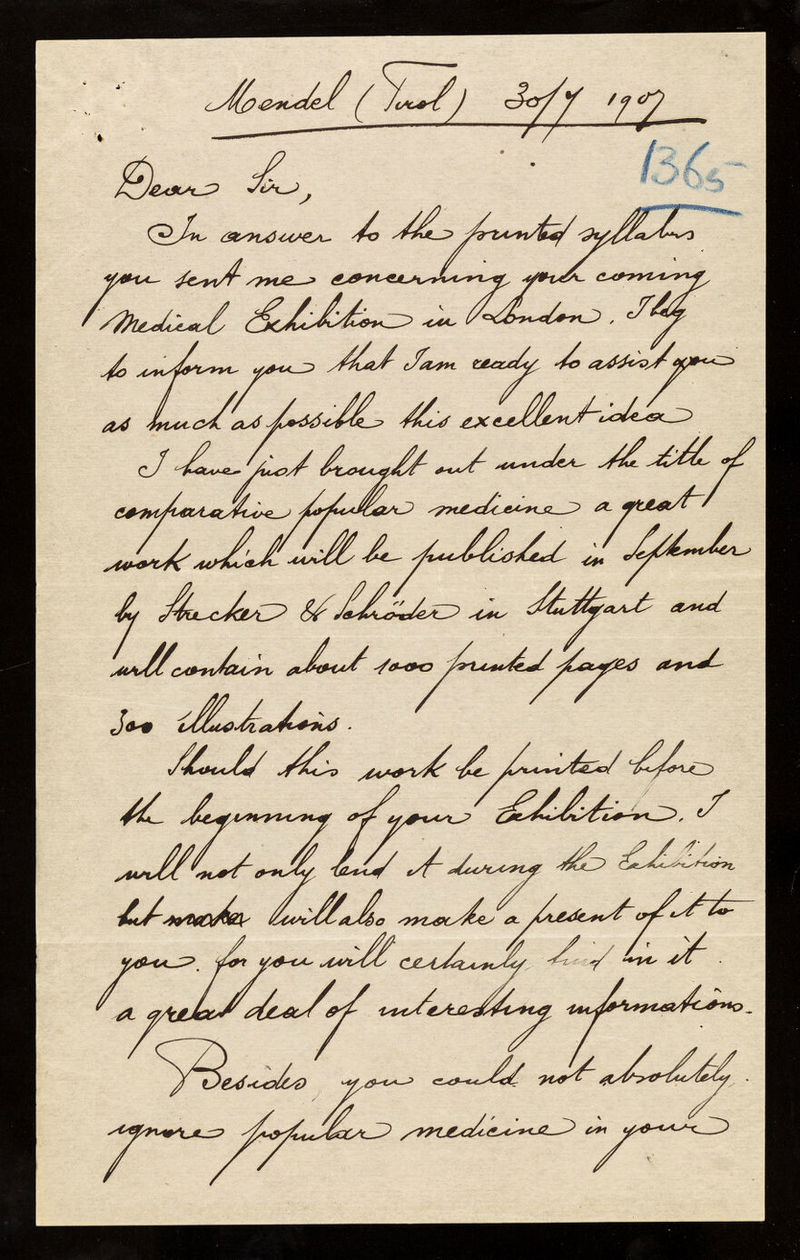 Mendel (Tirol) 30/7 1907
1365
Dear Sir,
In answer to the printed syllabus
you sent me concerning your coming
Medical Exhibition in London, I beg
to inform you that I am ready to assist you
as much as possible this excellent idea
I have just brought out under the title of
comparative popular medicine a great
work which will be published in September
by Strecker & Schröder in Stuttgart and
will contain about 1000 printed pages and
300 illustrations.
Should this work be printed before
the beginning of your Exhibition, I
will not only lend it during the Exhibition
but make will also make a present of it to
you. for you will certainly find in it
a great deal of interesting informations.
Besides, you could not absolutely
ignore popular medicine in your